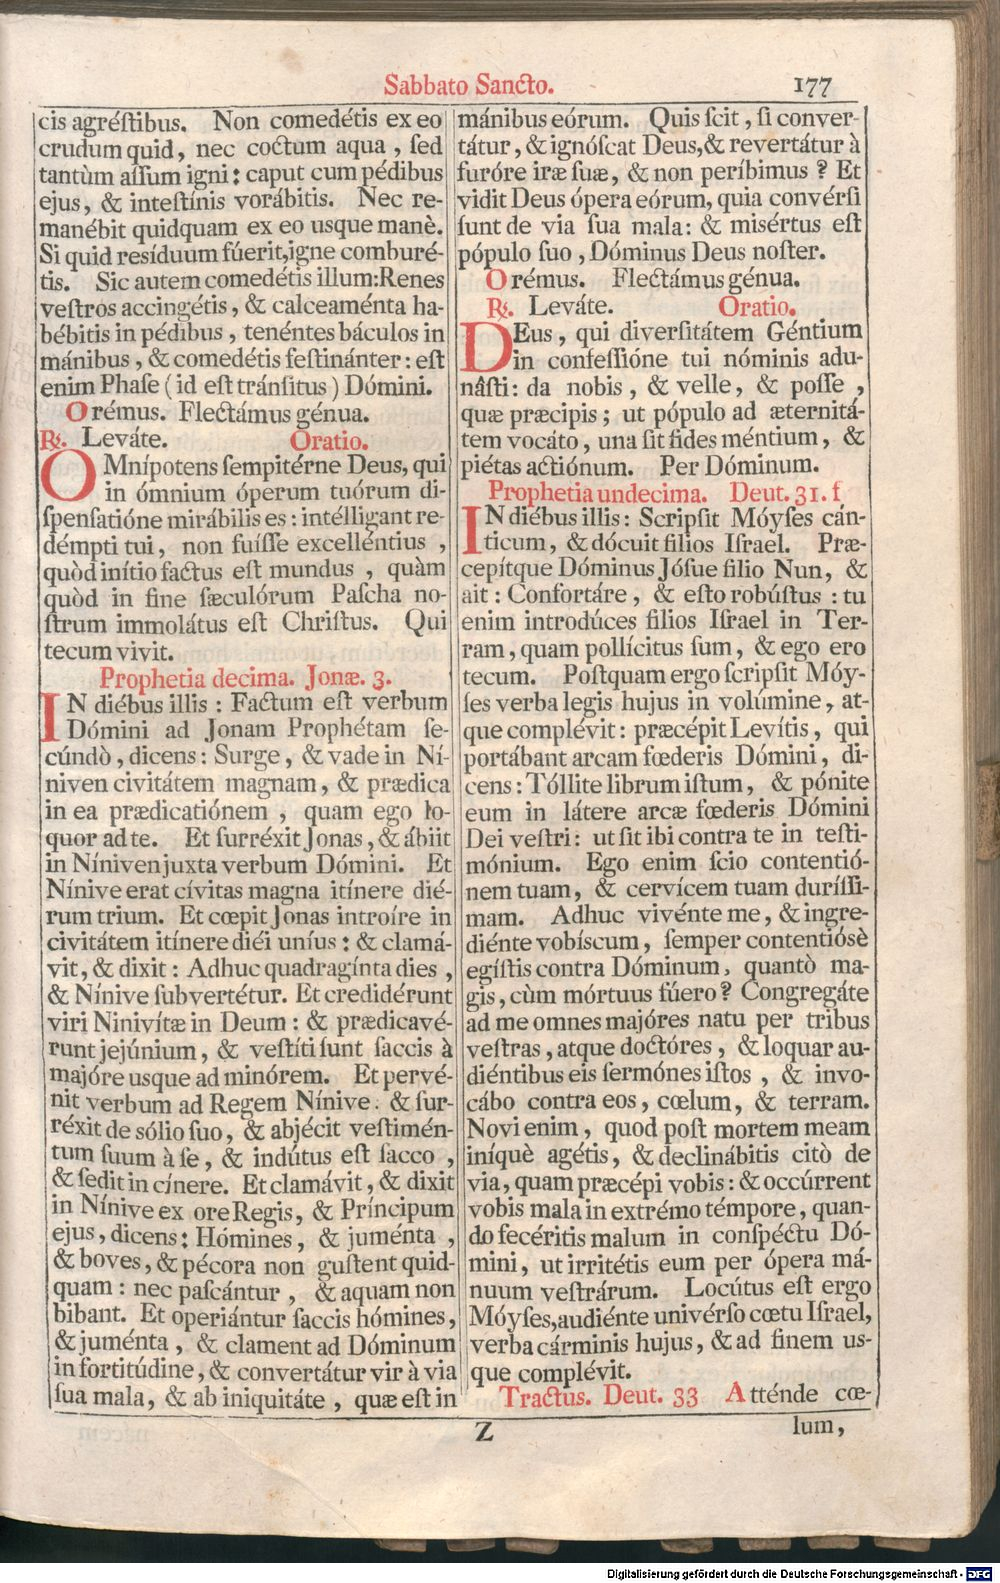 Sabbato Sancto. 177
cis agréſtibus. Non comedétis ex eo
crudum quid, nec coctum aqua, ſed
tantùm aſſum igni: caput cum pédibus
ejus, & inteſtínis vorábitis. Nec re-
manébit quidquam ex eo usque manè.
Si quid resíduum fúerit,igne comburé-
tis. Sic autem comedétis illum:Renes
veſtros accingétis, & calceaménta ha-
bébitis in pédibus, tenéntes báculos in
mánibus, & comedétis feſtinánter: eſt
enim Phaſe (id eſt tránſitus) Dómini.
Orémus. Flectámus génua.
℟. Leváte. Oratio.
OMnípotens ſempitérne Deus, qui
in ómnium óperum tuórum di-
ſpenſatióne mirábilis es: intélligant re-
démpti tui, non fuíſſe excelléntius,
quòd inítio factus eſt mundus, quàm
quòd in fine ſæculórum Paſcha no-
ſtrum immolátus eſt Chriſtus. Qui
tecum vivit.
Prophetia decima. Jonæ. 3.
IN diébus illis: Factum eſt verbum
Dómini ad Jonam Prophétam ſe-
cúndò, dicens: Surge, & vade in Ní-
niven civitátem magnam, & prædica
in ea prædicatiónem, quam ego lo-
quor ad te. Et ſurréxit Jonas, & ábiit
in Níniven juxta verbum Dómini. Et
Nínive erat cívitas magna itínere dié-
rum trium. Et cœpit Jonas introíre in
civitátem itínere diéi uníus: & clamá-
vit, & dixit: Adhuc quadragínta dies,
& Nínive ſubvertétur. Et credidérunt
viri Ninivítæ in Deum: & prædicavé-
runt jejúnium, & veſtíti ſunt ſaccis à
majóre usque ad minórem. Et pervé-
nit verbum ad Regem Nínive: & ſur-
réxit de sólio ſuo, & abjécit veſtimén-
tum ſuum à ſe, & indútus eſt ſacco,
& ſedit in cínere. Et clamávit, & dixit
in Nínive ex ore Regis, & Príncipum
ejus, dicens: Hómines, & juménta,
& boves, & pécora non guſtent quid-
quam: nec paſcántur, & aquam non
bibant. Et operiántur ſaccis hómines,
& juménta, & clament ad Dóminum
in fortitúdine, & convertátur vir à via
ſua mala, & ab iniquitáte, quæ eſt in
mánibus eórum. Quis ſcit, ſi conver-
tátur, & ignóſcat Deus,& revertátur à
furóre iræ ſuæ, & non períbimus? Et
vidit Deus ópera eórum, quia convérſi
ſunt de via ſua mala: & misértus eſt
pópulo ſuo, Dóminus Deus noſter.
Orémus. Flectámus génua.
℟. Leváte. Oratio.
DEus, qui diverſitátem Géntium
in confeſſióne tui nóminis adu-
náſti: da nobis, & velle, & poſſe,
quæ præcipis; ut pópulo ad æternitá-
tem vocáto, una ſit fides méntium, &
piétas actiónum. Per Dóminum.
Prophetia undecima. Deut. 31. f
IN diébus illis: Scripſit Móyſes cán-
ticum, & dócuit filios Iſrael. Præ-
cepítque Dóminus Jóſue filio Nun, &
ait: Confortáre, & eſto robúſtus: tu
enim introdúces filios Iſrael in Ter-
ram, quam pollícitus ſum, & ego ero
tecum. Poſtquam ergo ſcripſit Móy-
ſes verba legis hujus in volúmine, at-
que complévit: præcépit Levítis, qui
portábant arcam fœderis Dómini, di-
cens: Tóllite librum iſtum, & pónite
eum in látere arcæ fœderis Dómini
Dei veſtri: ut ſit ibi contra te in teſti-
mónium. Ego enim ſcio contentió-
nem tuam, & cervícem tuam duríſſi-
mam. Adhuc vivénte me, & ingre-
diénte vobíscum, ſemper contentiósè
egíſtis contra Dóminum, quantò ma-
gis, cùm mórtuus fúero? Congregáte
ad me omnes majóres natu per tribus
veſtras, atque doctóres, & loquar au-
diéntibus eis ſermónes iſtos, & invo-
cábo contra eos, cœlum, & terram.
Novi enim, quod poſt mortem meam
iníquè agétis, & declinábitis citò de
via, quam præcépi vobis: & occúrrent
vobis mala in extrémo témpore, quan-
do fecéritis malum in conſpéctu Dó-
mini, ut irritétis eum per ópera má-
nuum veſtrárum. Locútus eſt ergo
Móyſes,audiénte univérſo cœtu Iſrael,
verba cárminis hujus, & ad finem us-
que complévit.
Tractus. Deut. 33 Atténde cœ-
Z lum,
Digitalisierung gefördert durch die Deutsche Forschungsgemeinschaft - DFG